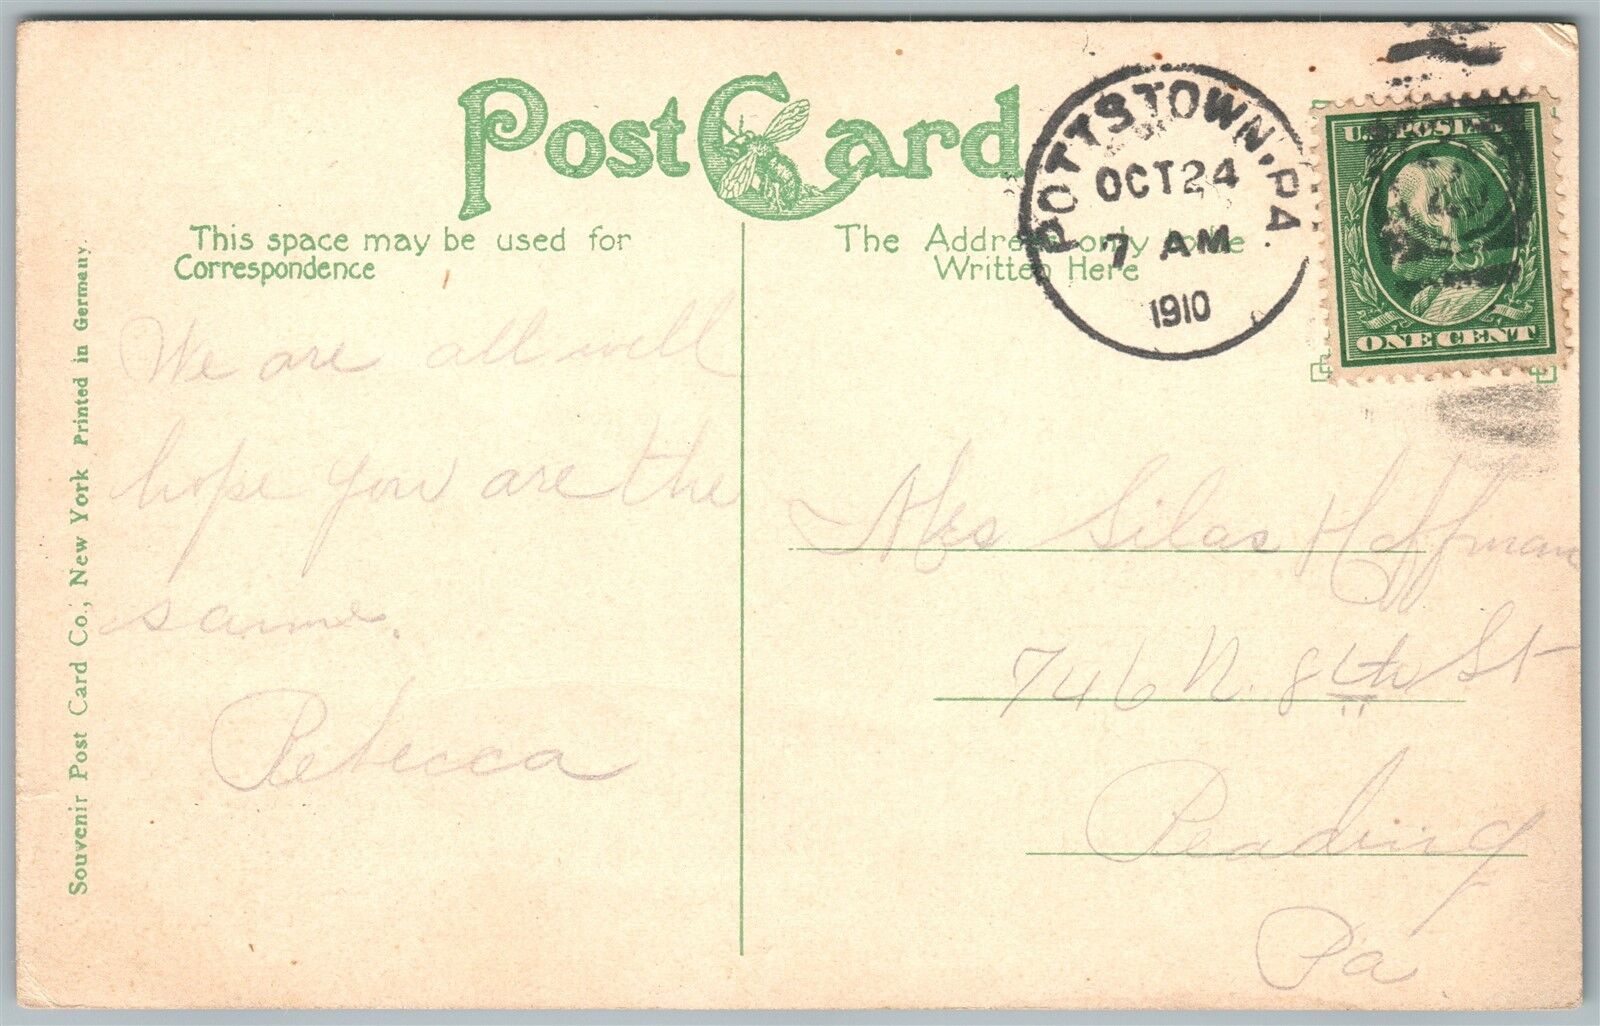 Post Card
This space may be used for
Correspondence
The Address only to be
Written Here
POTTSTOWN, PA.
OCT 24
7 AM
1910
U.S. POSTAGE
ONE CENT
We are all well
hope you are the
same.
Rebecca
Mrs Silas Hoffman
746 N. 8th St
Reading
Pa
Souvenir Post Card Co., New York Printed in Germany.